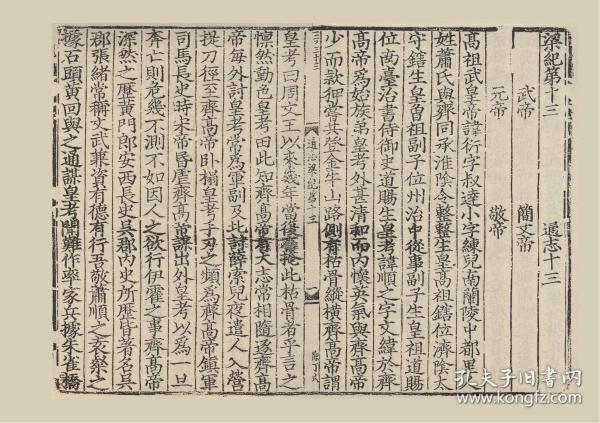 梁紀第十三 通志十三
武帝 簡文帝
元帝 敬帝
高祖武皇帝諱衍字叔達小字練兒南蘭陵中都里人
姓蕭氏與齊同承淮陰令整整生皇高祖鎋位濟陰太
守鎋生皇曾祖副子位州治中從事副子生皇祖道賜
位南臺治書侍御史道賜生皇考諱順之字文緯於齊
高帝為始族弟皇考外甚清和而內懷英氣與齊高帝
少而款狎嘗共登金牛山路側有枯骨縱橫齊高帝謂
通志梁紀第十三
皇考曰周文王以來幾年當復有掩此枯骨者乎言之
懍然動色皇考由此知齊高帝有大志常相隨逐齊高
帝每外討皇考常為軍副及北討薛索兒夜遣人入營
提刀徑至齊高帝臥榻皇考手刃之頻為齊高帝鎮軍
司馬長史時宋帝昏虐齊高帝謀出外皇考以為一旦
奔亡則危幾不測不如因人之欲行伊霍之事齊高帝
深然之歷黃門郎安西長史吳郡內史所歷皆著名吳
郡張緒常稱文武兼資有德有行吾敬蕭順之袁粲之
據石頭黃回與之通謀皇考聞難作率家兵據朱雀橋
孔夫子旧书网
www.kongfz.com